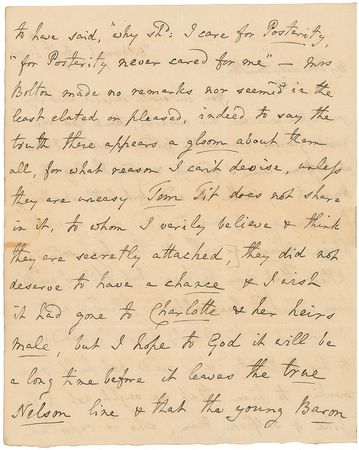 to have said, "why shd: I care for Posterity,
"for Posterity never cared for me" – Mrs
Bolton made no remarks nor seem'd in the
least elated or pleased, indeed to say the
truth there appears a gloom about them
all, for what reason I can't devise, unless
they are uneasy Tom Tit does not share
in it, to whom I verily believe & think
they are secretly attached, they did not
deserve to have a chance & I wish
it had gone to Charlotte & her heirs
male, but I hope to God it will be
a long time before it leaves the true
Nelson line & that the young Baron